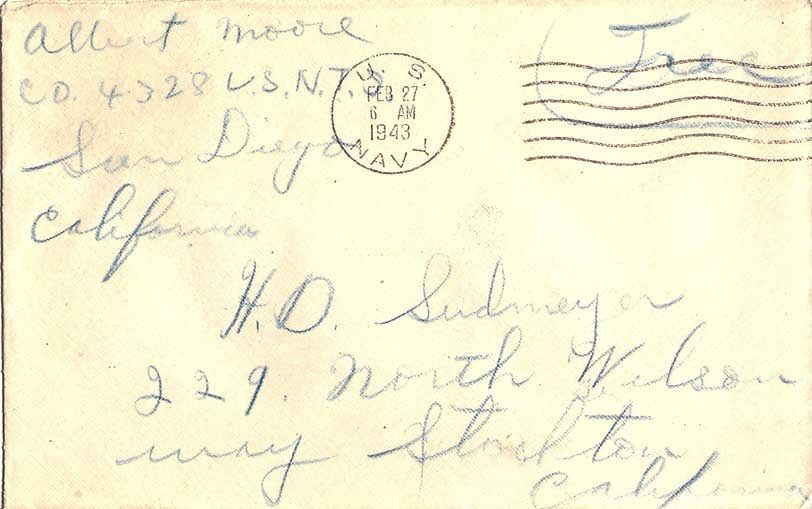 Albert Moore
Free
CO. 4328 U.S.N.T.S
San Diego
California
U. S.
FEB 27
6 AM
1943
NAVY
H.D. Sudmeyer
229. North Wilson
way Stockton
California